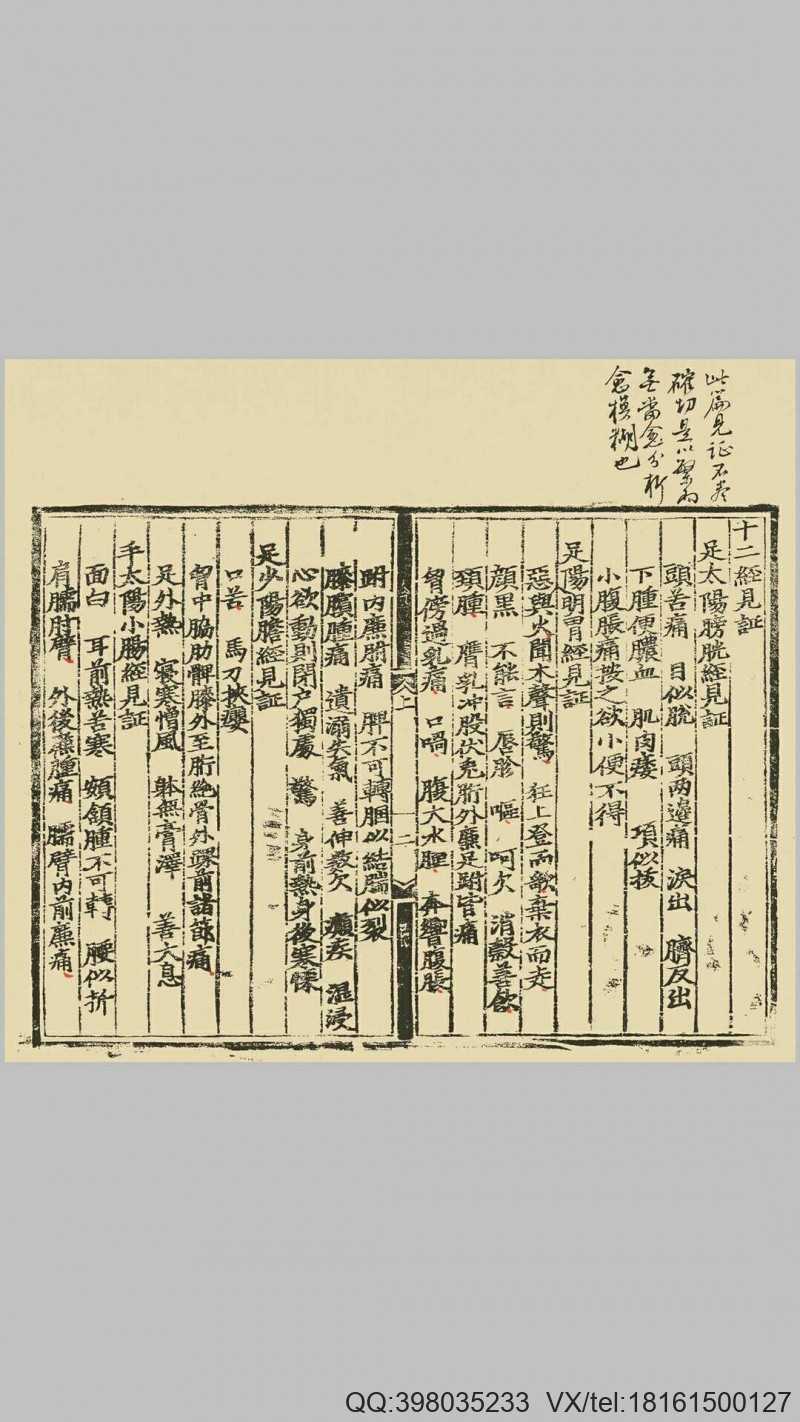 此篇見证不盡
確切是以緊為
愈模糊也
十二經見証
足太陽膀胱經見証
頭苦痛 目似脫 頭两邊痛 淚出 臍反出
下腫便膿血 肌肉痿 項似拔
小腹脹痛按之欲小便不得
足陽明胃經見証
惡與火聞木聲則驚 狂上登而歌棄衣而走
顔黑 不能言 唇胗 嘔 呵欠 消穀善飲
頸腫 膺乳冲股伏兔胻外廉足跗皆痛
胷傍過乳痛 口喎 腹大水腫 奔響腹脹
跗内廉胻痛 髀不可轉膕似結腨似裂
膝臏腫痛 遺溺失氣 善伸數欠 癲疾 濕浸
心欲動則閉户獨處 驚 身前熱身後寒慄
足少陽膽經見証
口苦 馬刀挾癭
胷中脇肋髀膝外至胻絶骨外踝前諸節痛
足外熱 寢寒憎風 躰無膏澤 善大息
手太陽小腸經見証
面白 耳前熱苦寒 頞頷腫不可轉 腰似折
肩臑肘臂 外後廉腫痛 臑臂内前廉痛
上
二
QQ:398035233 VX/tel:18161500127